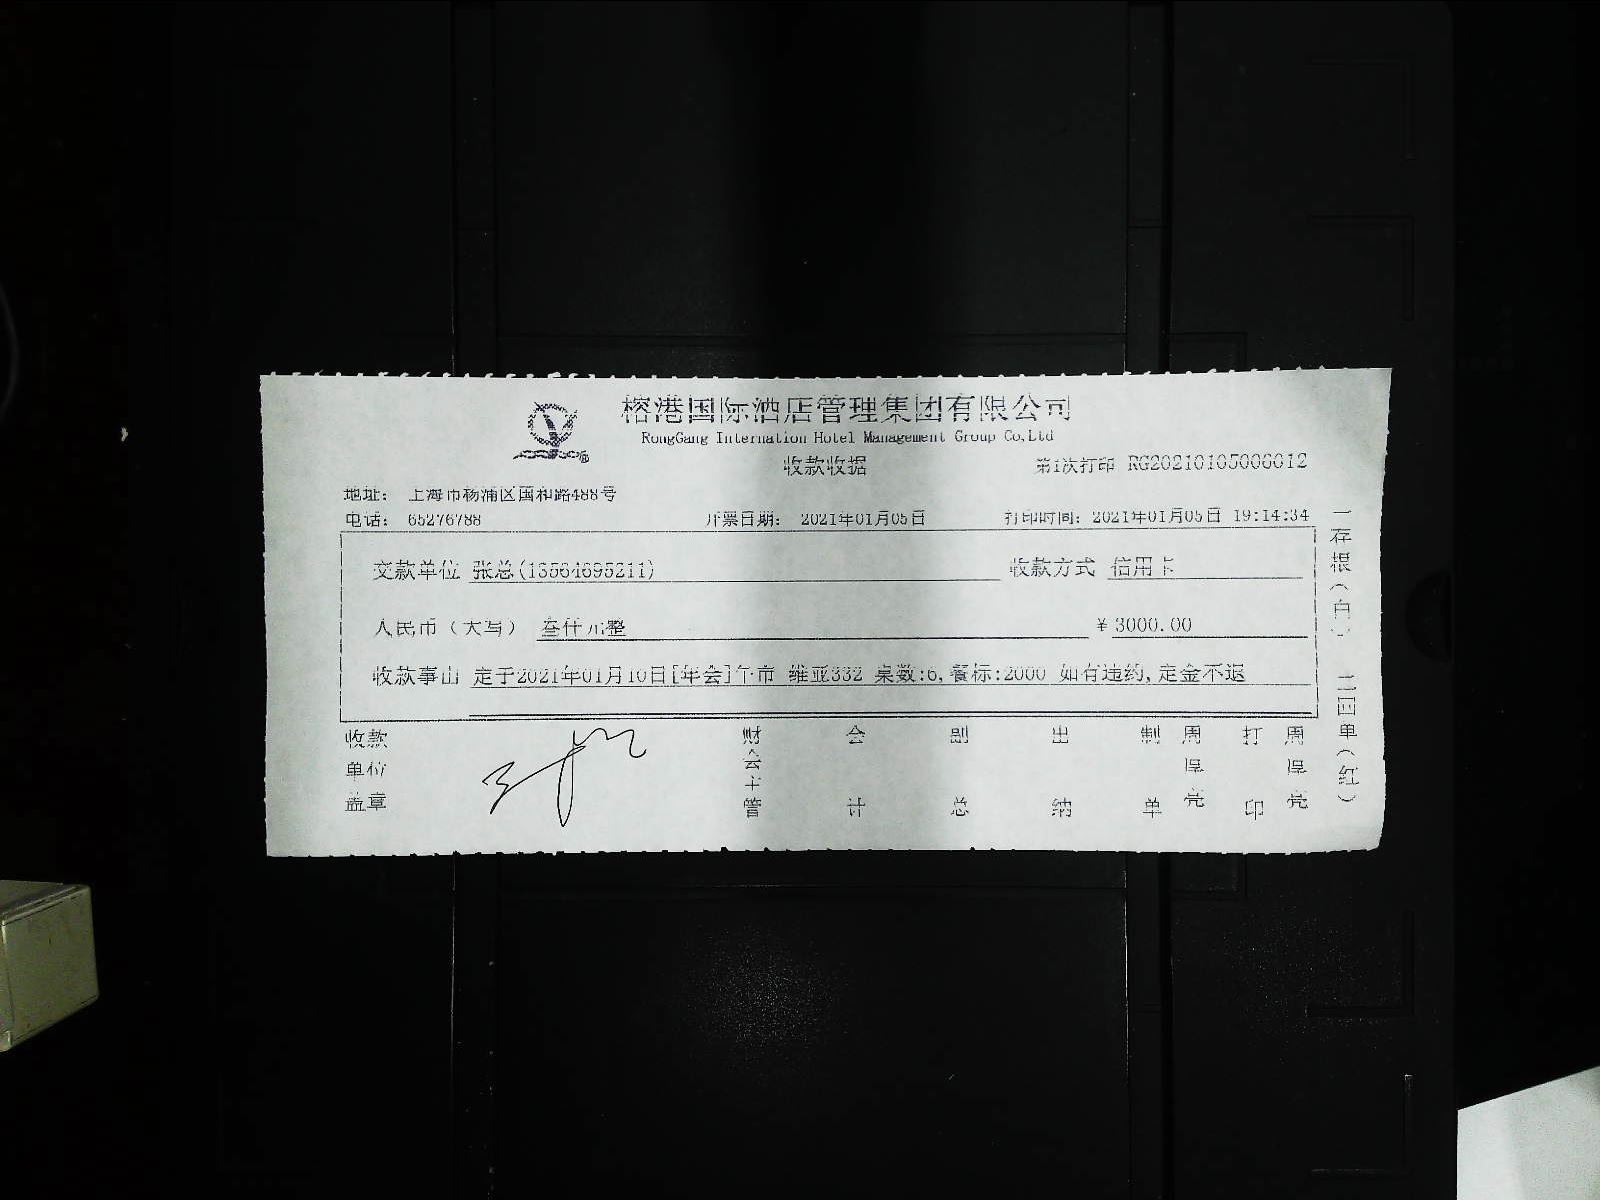 榕港国际酒店管理集团有限公司
RongGang Internation Hotel Management Group Co,Ltd
收款收据
第1次打印 RG20210105006012
地址： 上海市杨浦区国和路488号
电话： 65276788 开票日期： 2021年01月05日 打印时间：2021年01月05日 19:14:34
交款单位 张总(13564695211) 收款方式 信用卡
人民币（大写） 叁仟元整 ￥3000.00
收款事由 定于2021年01月10日[年会]午市 维亚332 桌数:6,餐标:2000 如有违约,定金不退
收款单位盖章 财会主管 会计 副总 出纳 制单 周呈亮 打印 周呈亮
一存根（白） 二四单（红）